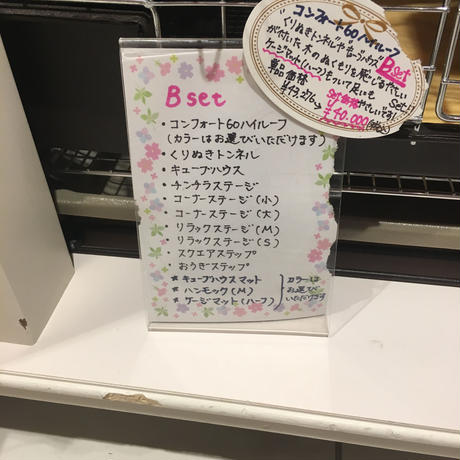 コンフォート60ハイルーフ
B set
くりぬきトンネルや
が付いた木のぬくもりを
ケージマット(ハーフ)もついて足にも
単品価格
¥43,276→
set価格
¥40,000
B set
・コンフォート60ハイルーフ
(カラーはお選びいただけます)
・くりぬきトンネル
・キューブハウス
・チンチラステージ
・コーナーステージ(小)
・コーナーステージ(大)
・リラックスステージ(M)
・リラックスステージ(S)
・スクエアステップ
・おうぎステップ
★キューブハウスマット
★ハンモック(M)
★ケージマット(ハーフ)
カラーは
お選び
いただけます